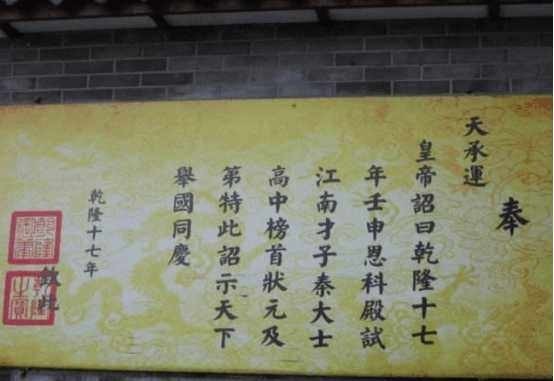 奉
天承運
皇帝詔曰乾隆十七
年壬申恩科殿試
江南才子秦大士
高中榜首狀元及
第特此詔示天下
舉國同慶
乾隆十七年
欽此